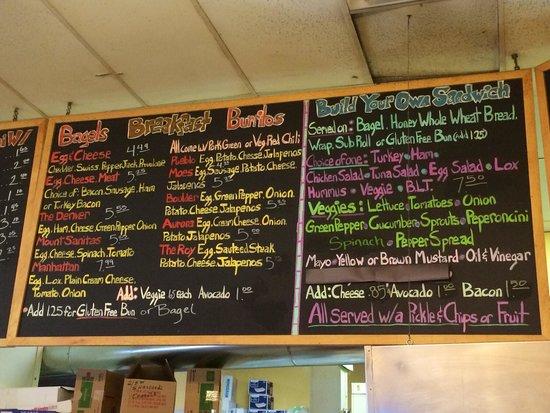 W/
Bagels Breakfast Burritos
Egg & Cheese 4.49
Cheddar, Swiss, Pepper Jack, Provolone
Egg Cheese, Meat 5.25
Choice of: Bacon, Sausage, Ham
or Turkey Bacon
The Denver 5.50
Egg, Ham, Cheese, Green Pepper, Onion
Mount Sanitas
Egg, Cheese, Spinach, Tomato
Manhattan 7.99
Egg, Lox, Plain Cream Cheese,
Tomato, Onion
Add 1.25 for Gluten Free Bun or Bagel
All come w/ Pork Green or Veg Red Chili
Pueblo Egg, Potato, Cheese, Jalapenos
Moes Egg, Sausage, Potato, Cheese
Jalapenos
Boulder Egg, Green Pepper, Onion
Potato, Cheese, Jalapenos
Aurora Egg, Cream Cheese, Onion
Potato, Jalapenos
The Roy Egg, Sauteed Steak
Potato, Cheese, Jalapenos
Add: Veggie each Avocado 1.00
Build Your Own Sandwich
Served on: Bagel, Honey Whole Wheat Bread,
Wrap, Sub Roll or Gluten Free Bun (add 1.25)
Choice of one: Turkey • Ham •
Chicken Salad • Tuna Salad • Egg Salad • Lox
Hummus • Veggie • B.L.T. 7.50
Veggies: Lettuce • Tomatoes • Onion
Green Pepper • Cucumber • Sprouts • Peperoncini
Spinach • Pepper Spread
Mayo • Yellow or Brown Mustard • Oil & Vinegar
Add: Cheese .85 Avocado 1.00 Bacon 1.50
All Served w/ a Pickle & Chips or Fruit